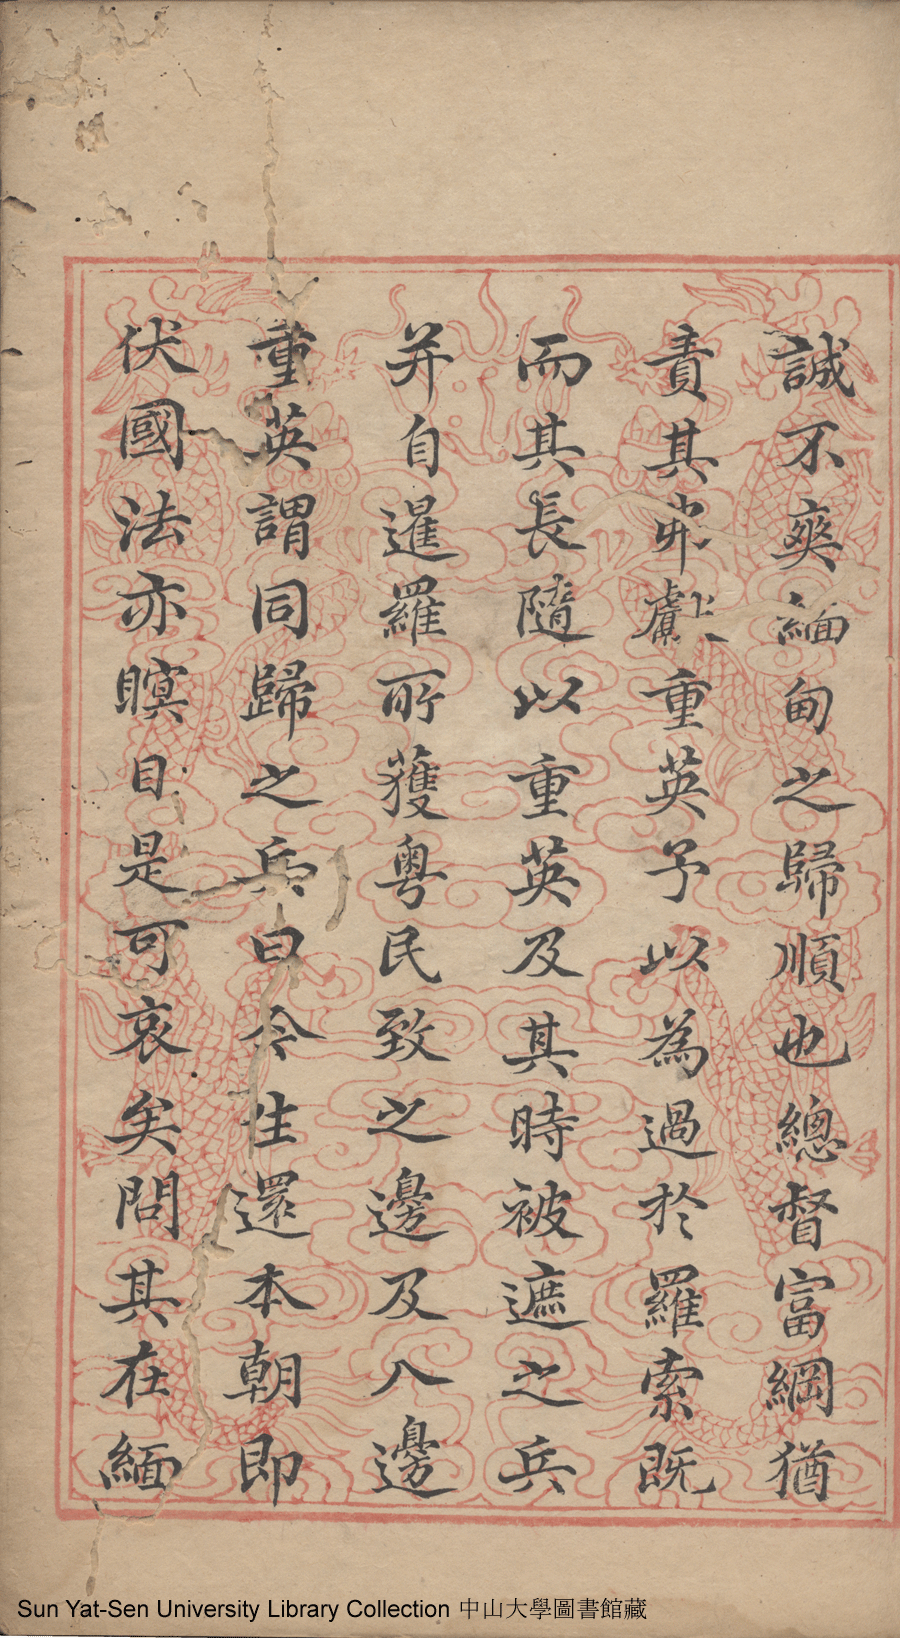 誠不爽緬甸之歸順也總督富綱猶
責其弗獻重英予以為過於羅索既
而其長隨以重英及其時被遮之兵
并自暹羅所獲粵民致之邊及入邊
重英謂同歸之兵曰今生還本朝即
伏國法亦瞑目是可哀矣問其在緬
Sun Yat-Sen University Library Collection 中山大學圖書館藏